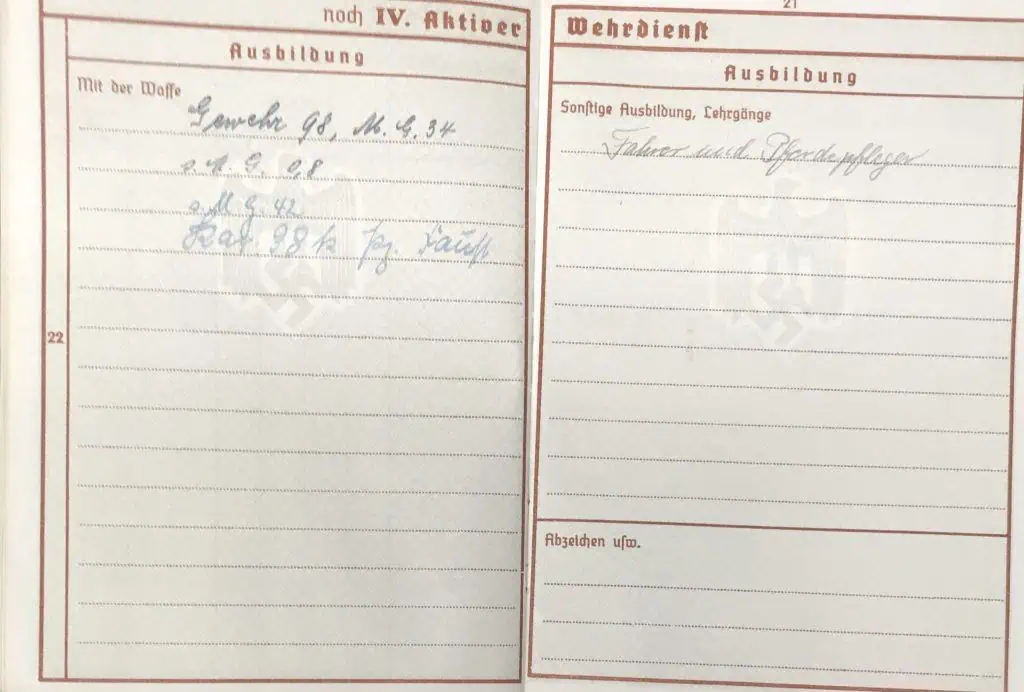 noch IV. Aktiver
Ausbildung
Mit der Waffe
Gewehr 98, M. G. 34
s. M. G. 08
s. M G. 42
Kar. 98 k Pz. Faust
22
21
Wehrdienst
Ausbildung
Sonstige Ausbildung, Lehrgänge
Fahrer und Pferdepfleger
Abzeichen usw.